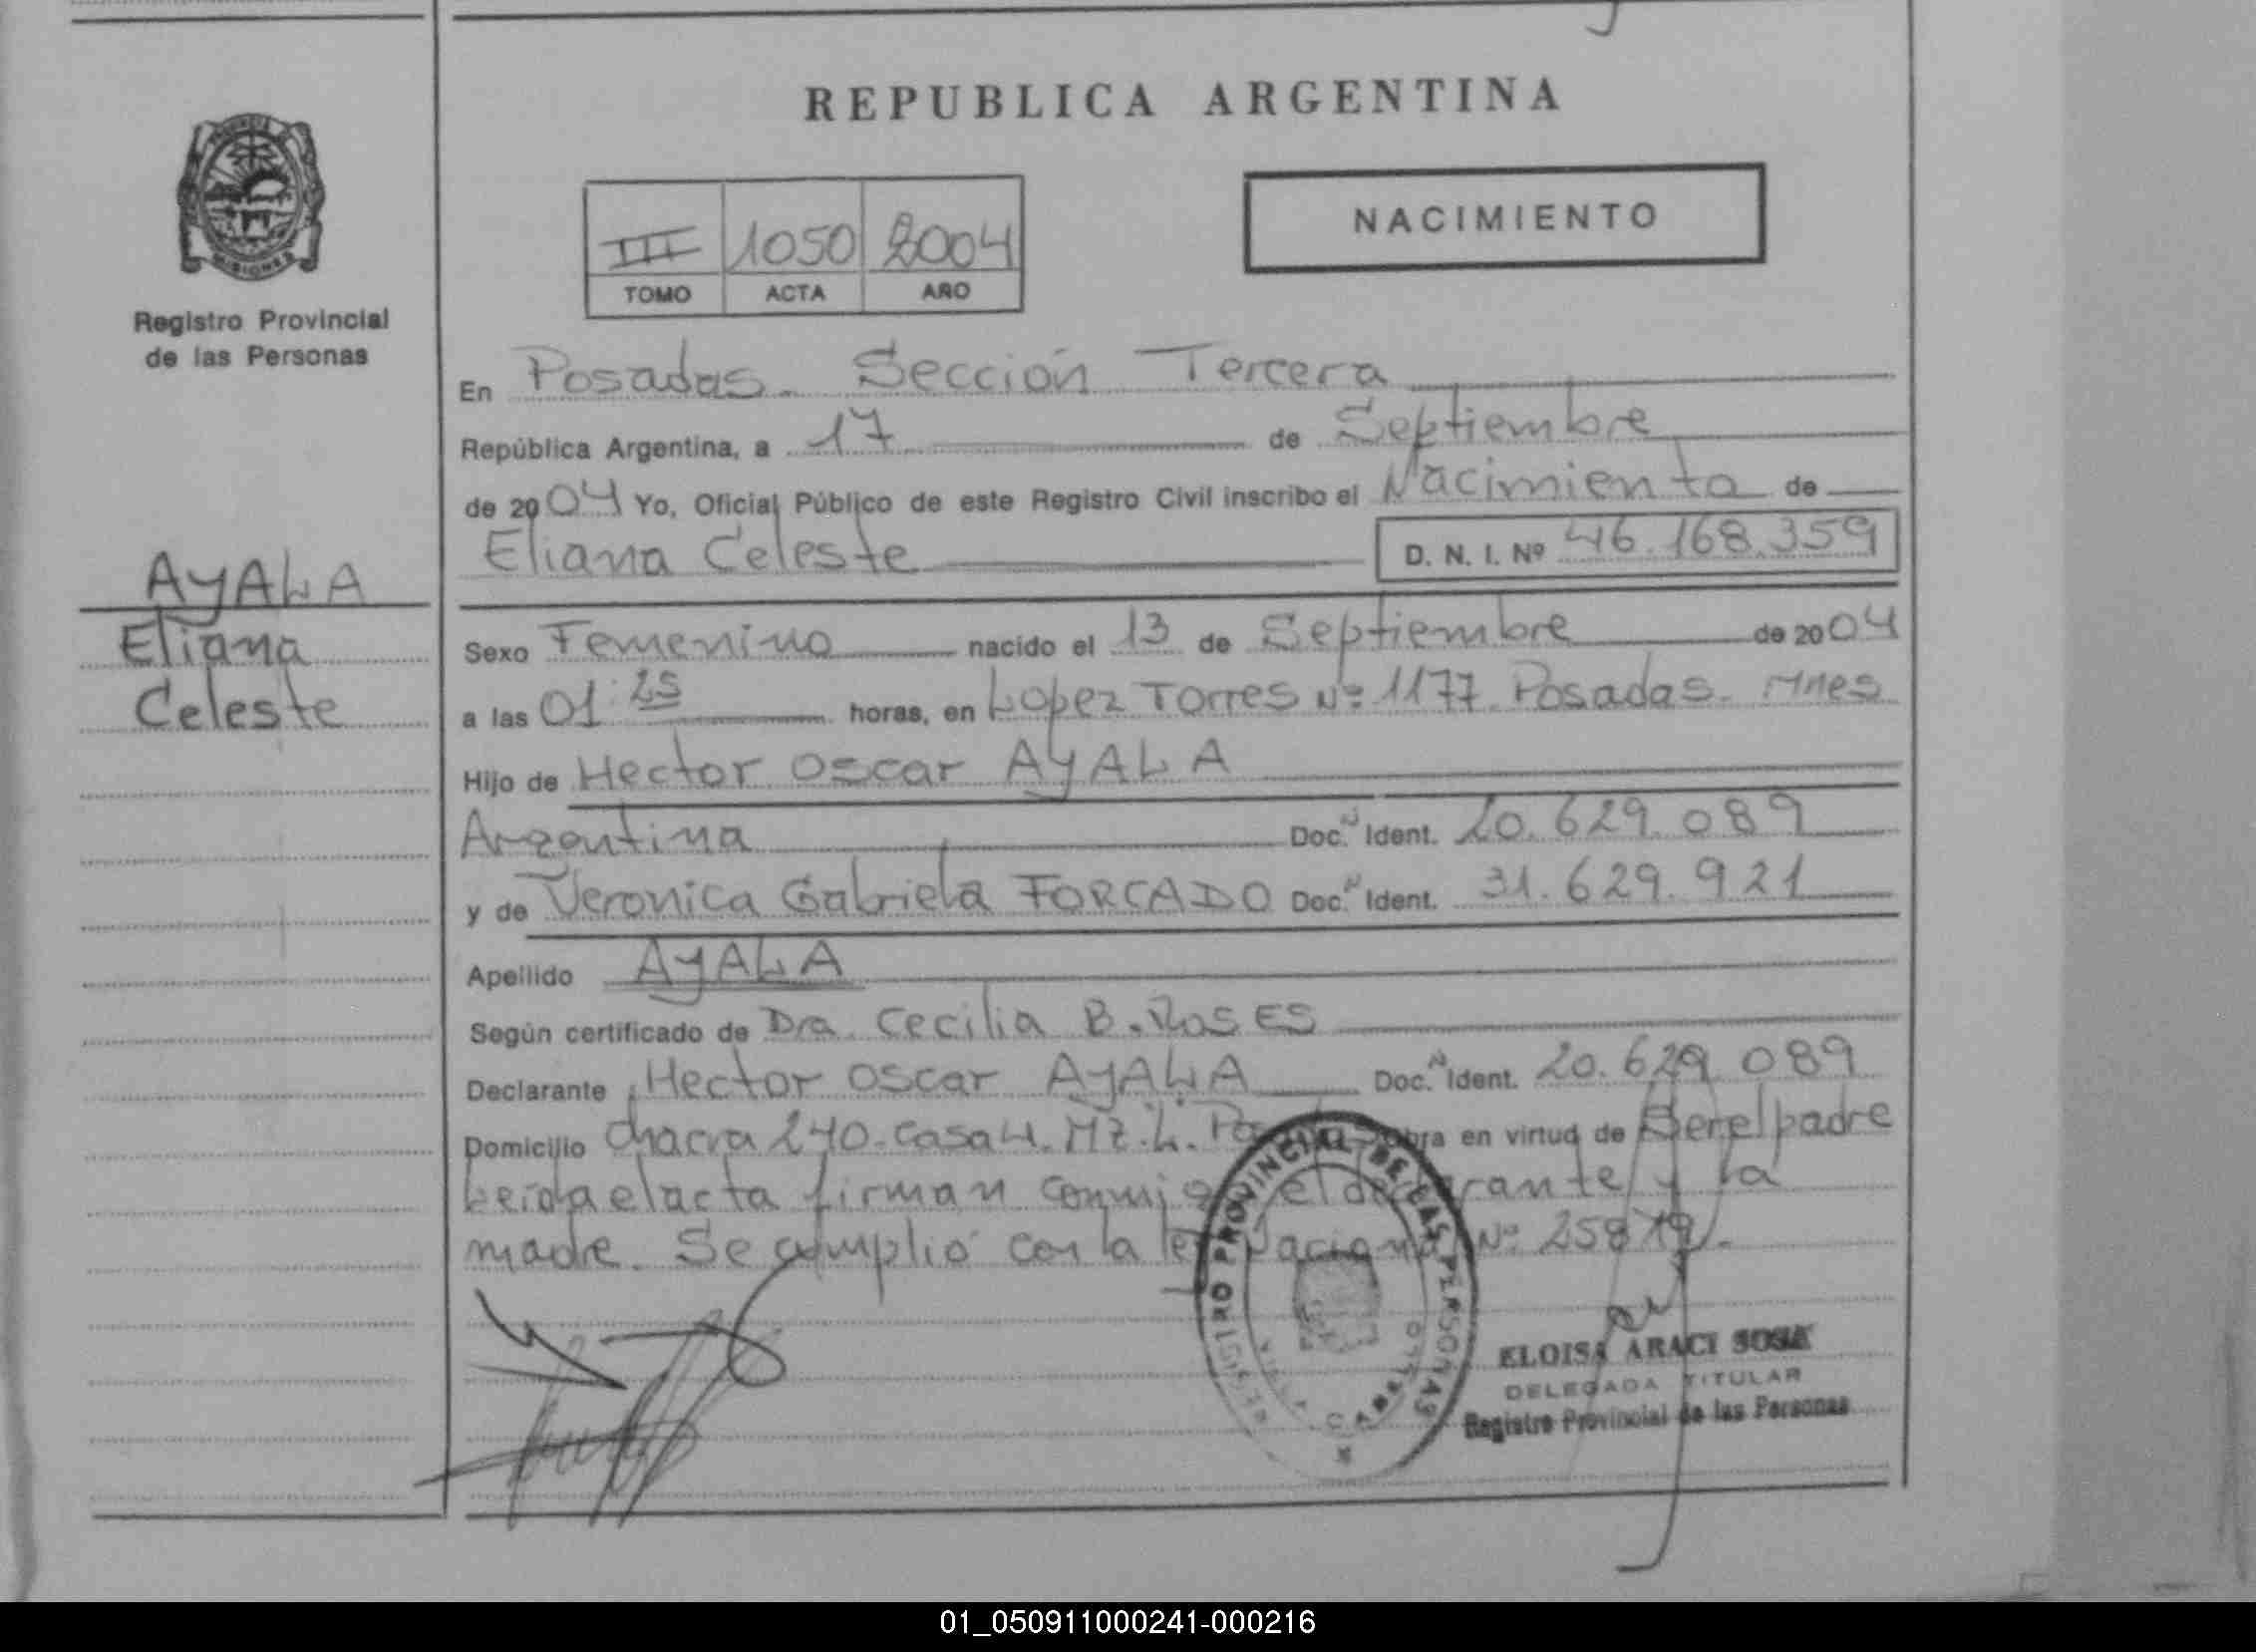 REPUBLICA ARGENTINA
NACIMIENTO
III 1050 2004
TOMO ACTA AÑO
MISIONES
Registro Provincial
de las Personas
AYALA
Eliana
Celeste
En Posadas. Sección Tercera
República Argentina, a 17 de Septiembre
de 2004 Yo, Oficial Público de este Registro Civil inscribo el Nacimiento de
Eliana Celeste D. N. I. Nº 46.168.359
Sexo Femenino nacido el 13 de Septiembre de 2004
a las 01:25 horas, en Lopez Torres Nº 1177. Posadas. Mnes
Hijo de Hector Oscar AYALA
Argentina Doc. N Ident. 20.629.089
y de Veronica Gabriela FORCADO Doc. N Ident. 31.629.921
Apellido AYALA
Según certificado de Dra. Cecilia B. Roses
Declarante Hector Oscar AYALA Doc. N Ident. 20.629.089
Domicilio Chacra 240. Casa 4. Mz. L. Obra en virtud de Ser el padre
Leída el acta firman conmigo el declarante y la
madre. Se cumplió con la ley Nacional Nº
REGISTRO PROVINCIAL DE LAS PERSONAS
VILLA CABELLO
ELOISA ARACI SOSA
DELEGADA TITULAR
Registro Provincial de las Personas
01_050911000241-000216